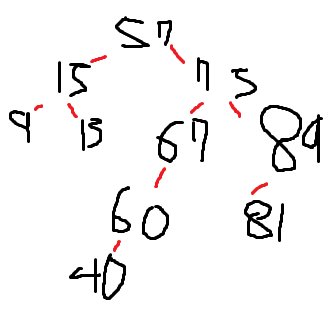 57
15 75
9 13 67 89
60 81
40